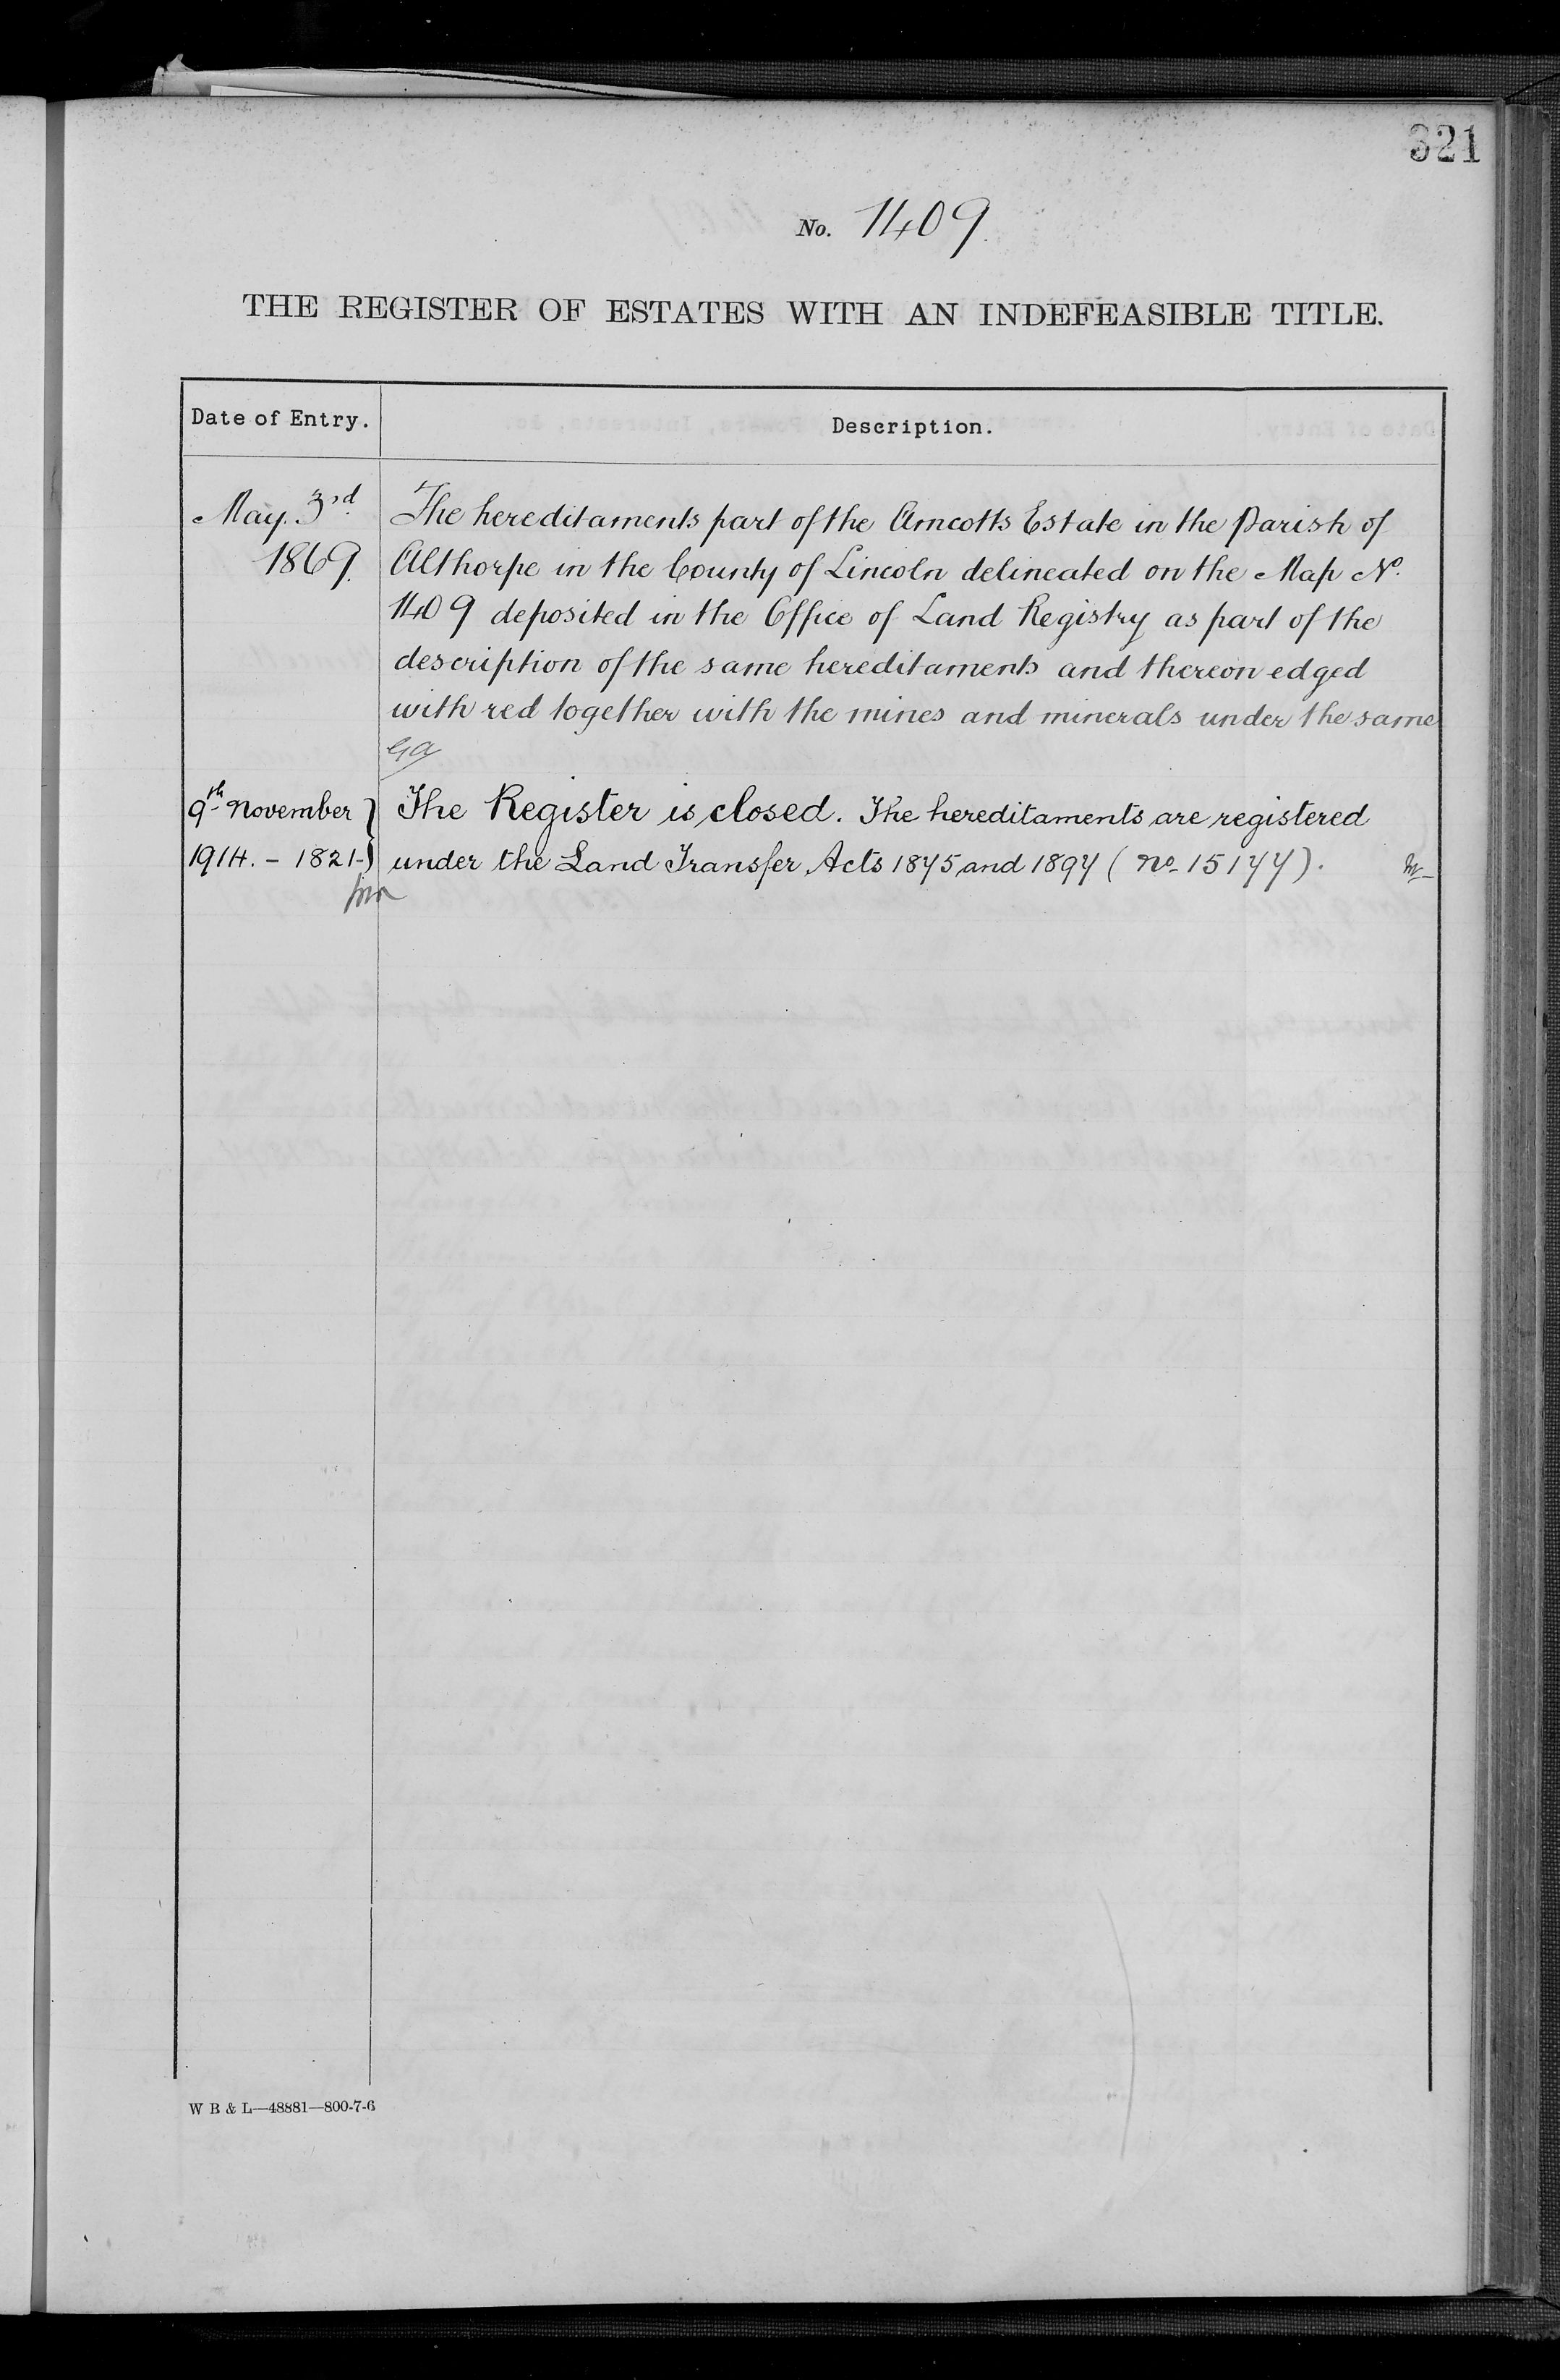 321
No. 1409.
THE REGISTER OF ESTATES WITH AN INDEFEASIBLE TITLE.
Date of Entry.
Description.
May. 3rd.
1869.
The hereditaments part of the Amcotts Estate in the Parish of
Althorpe in the County of Lincoln delineated on the Map No.
1409 deposited in the Office of Land Registry as part of the
description of the same hereditaments and thereon edged
with red together with the mines and minerals under the same
9th November
1914. - 1821-
The Register is closed. The hereditaments are registered
under the Land Transfer Acts 1875 and 1897 (No. 15177).
W B & L—48881—800-7-6